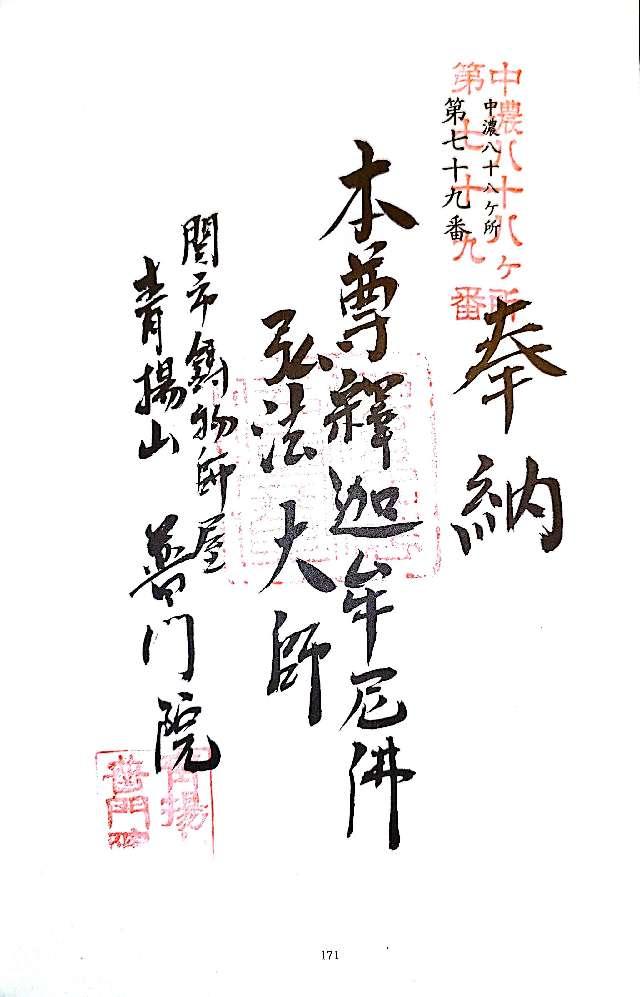 中濃八十八ケ所
第七十九番
中濃八十八ヶ所
第七十九番
奉納
本尊釋迦牟尼佛
弘法大師
関市鋳物師屋
青揚山 普門院
171